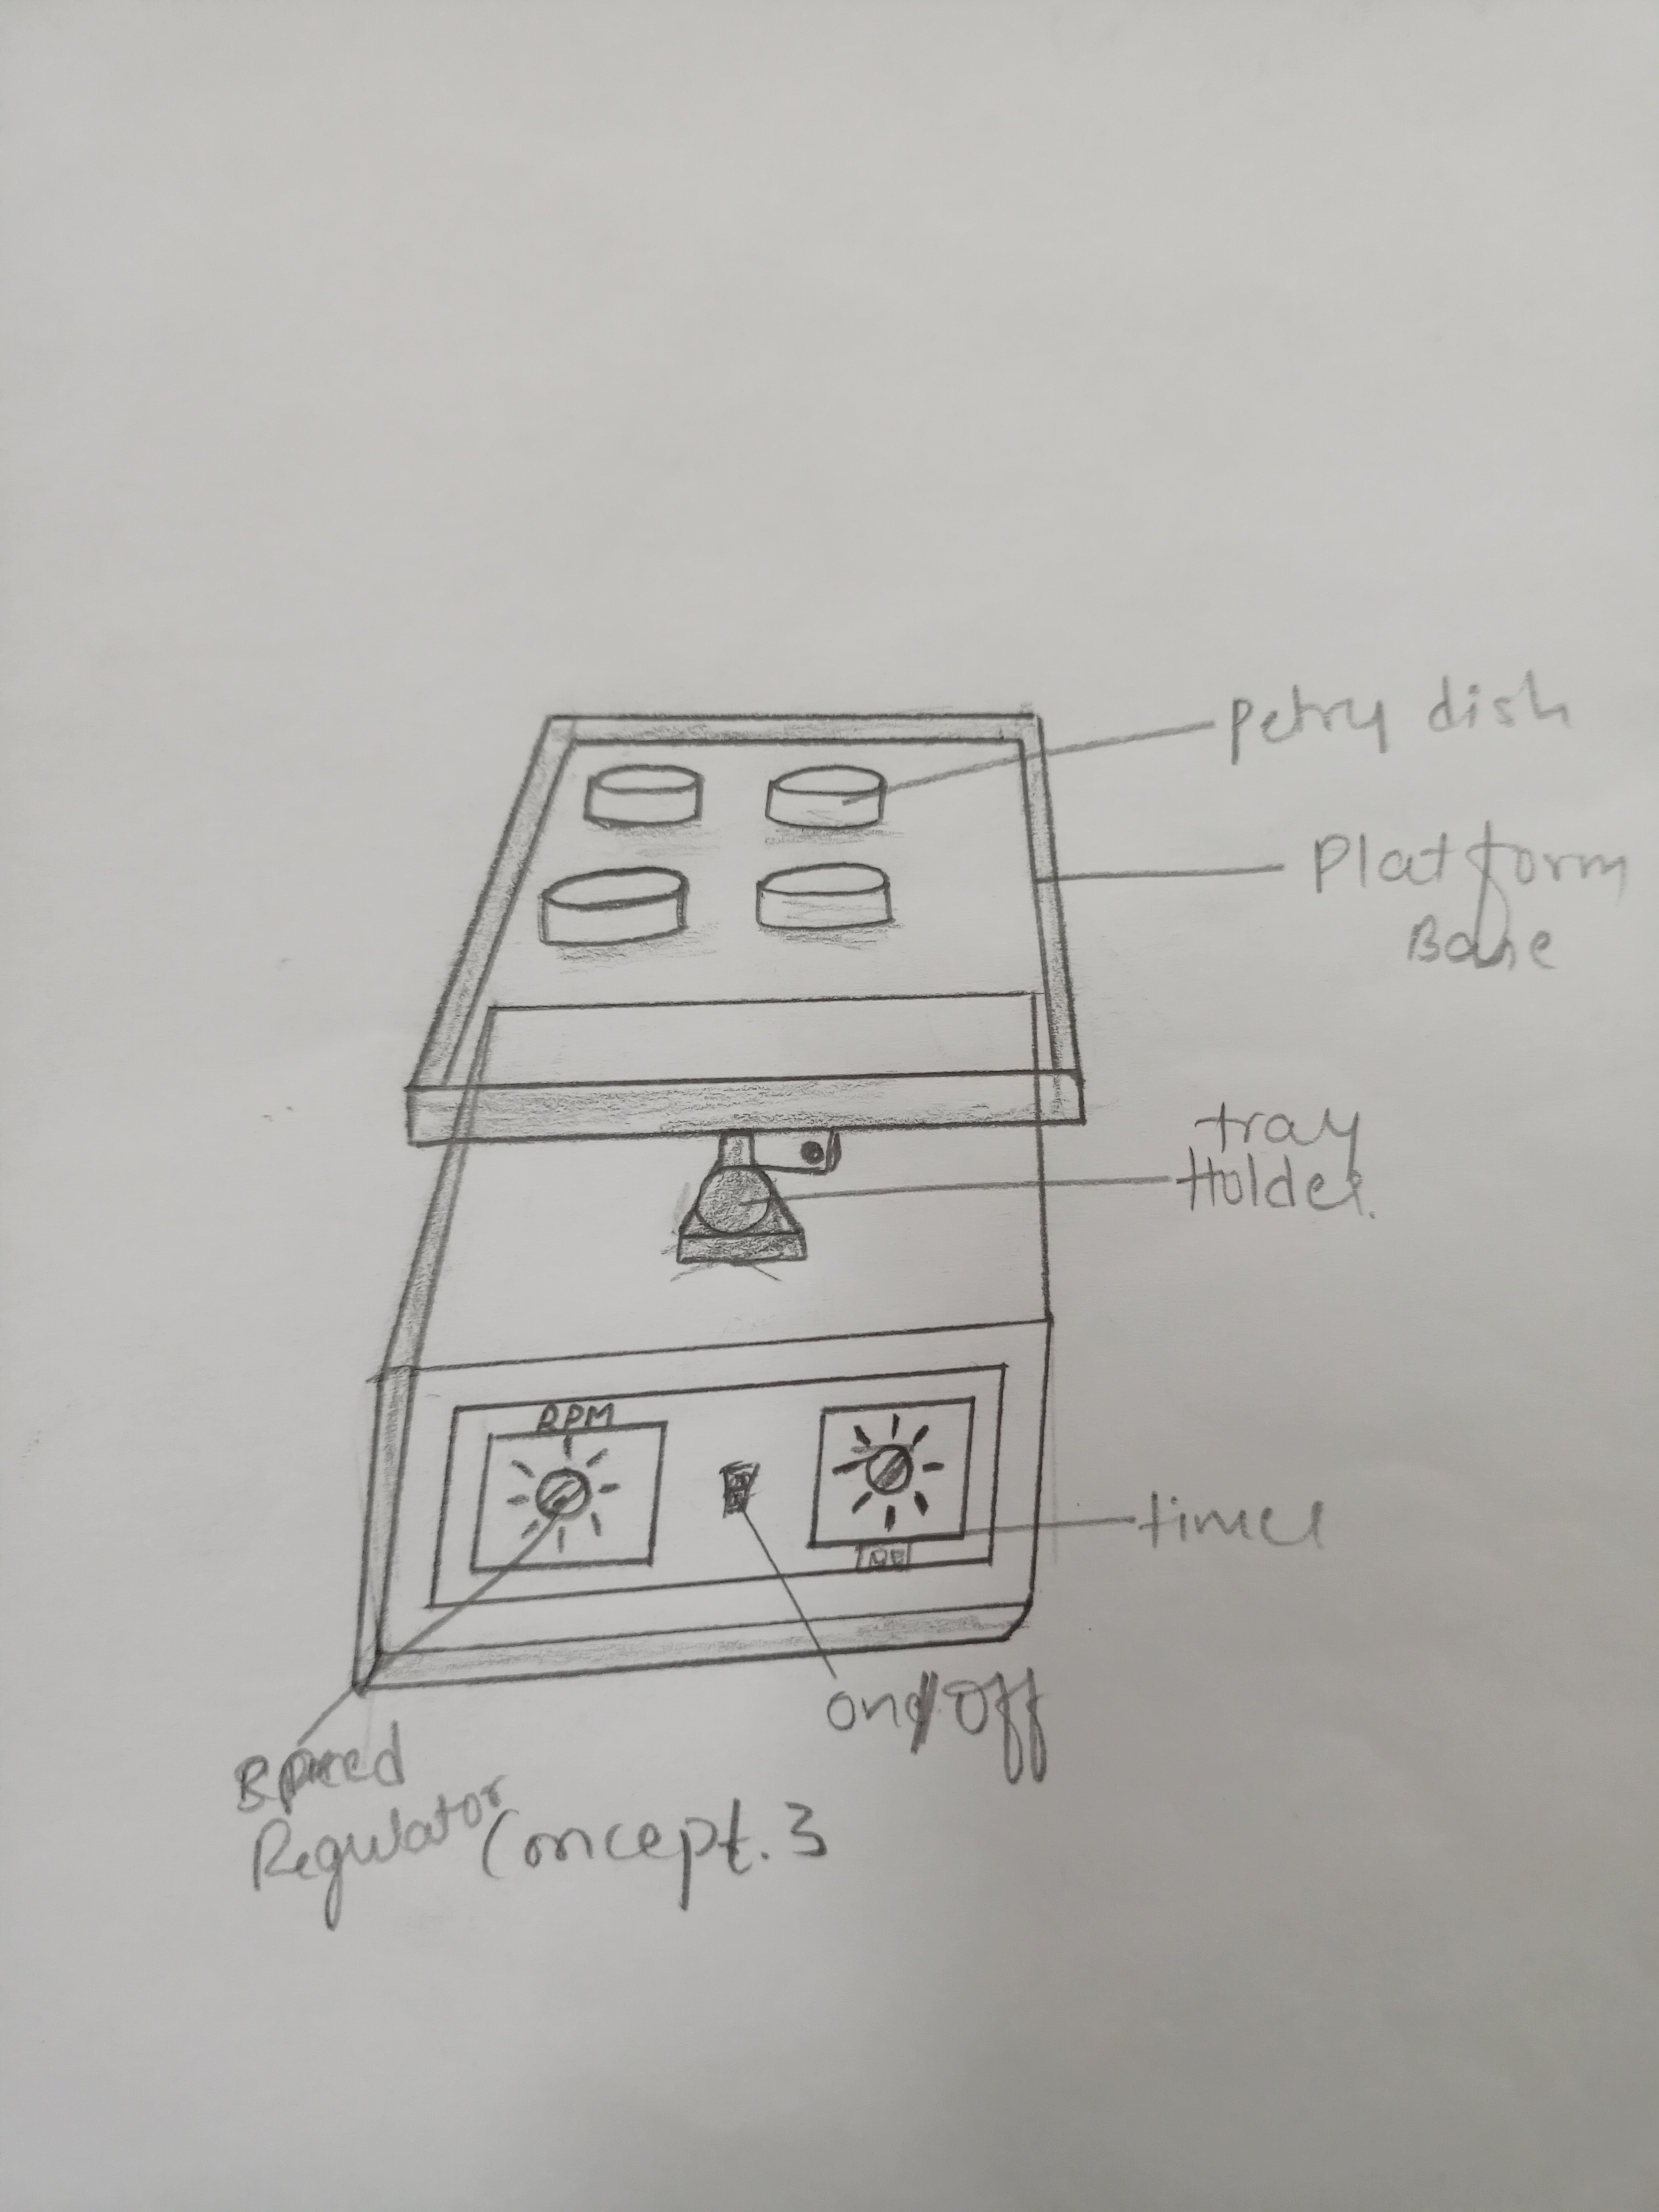 Petry dish
Platform
Base
tray
Holder.
RPM
timer
on/off
Speed
Regulator
Concept. 3